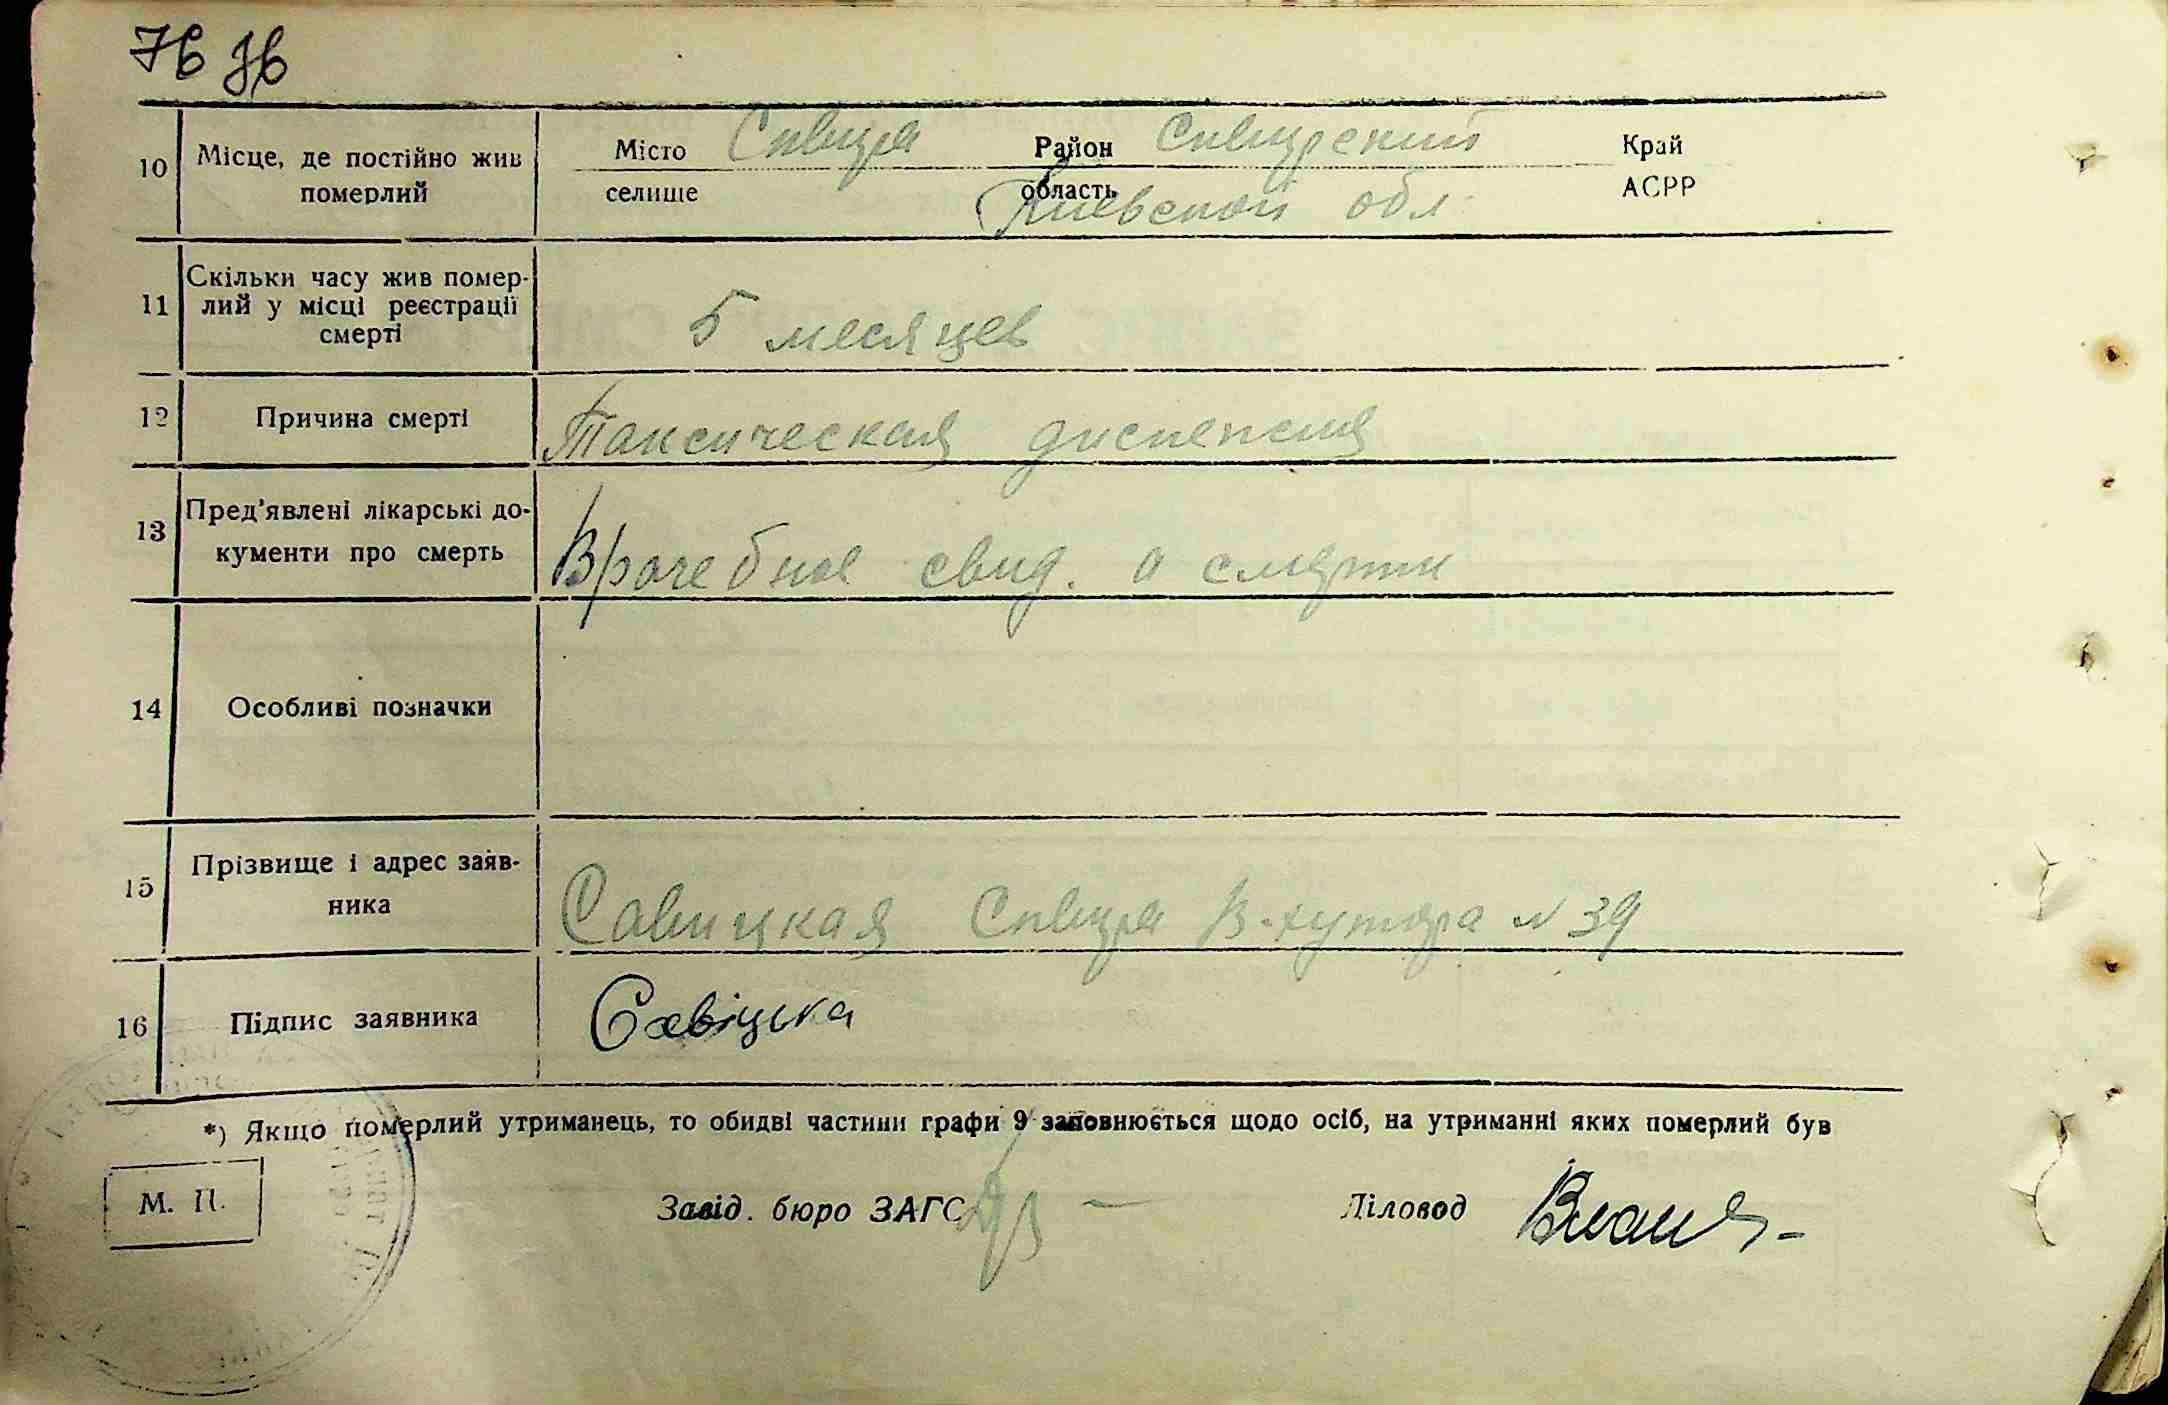 10 Місце, де постійно жив померлий Місто Сквира Район Сквирский Край
селище область Киевской обл. АСРР
11 Скільки часу жив помер-
лий у місці реєстрації
смерті 5 месяцев
12 Причина смерті Таксическая диспепсия
13 Пред'явлені лікарські до-
кументи про смерть Врачебное свид. о смерти
14 Особливі позначки
15 Прізвище і адрес заяв-
ника Савицкая Сквира В-хутора № 39
16 Підпис заявника Савіцька
*) Якщо померлий утриманець, то обидві частини графи 9 заповнюється щодо осіб, на утриманні яких померлий був
М. П. Завід. бюро ЗАГС Діловод